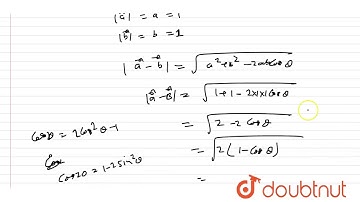 |a⃗| = a = 1
|b⃗| = b = 1
|a⃗ - b⃗| = √(a² + b² - 2ab cos θ)
|a⃗ - b⃗| = √(1 + 1 - 2×1×1 cos θ)
cos θ = 2 cos² θ - 1
= √(2 - 2 cos θ)
cos 2θ = 1 - 2 sin² θ
= √(2(1 - cos θ))
=
doubtnut